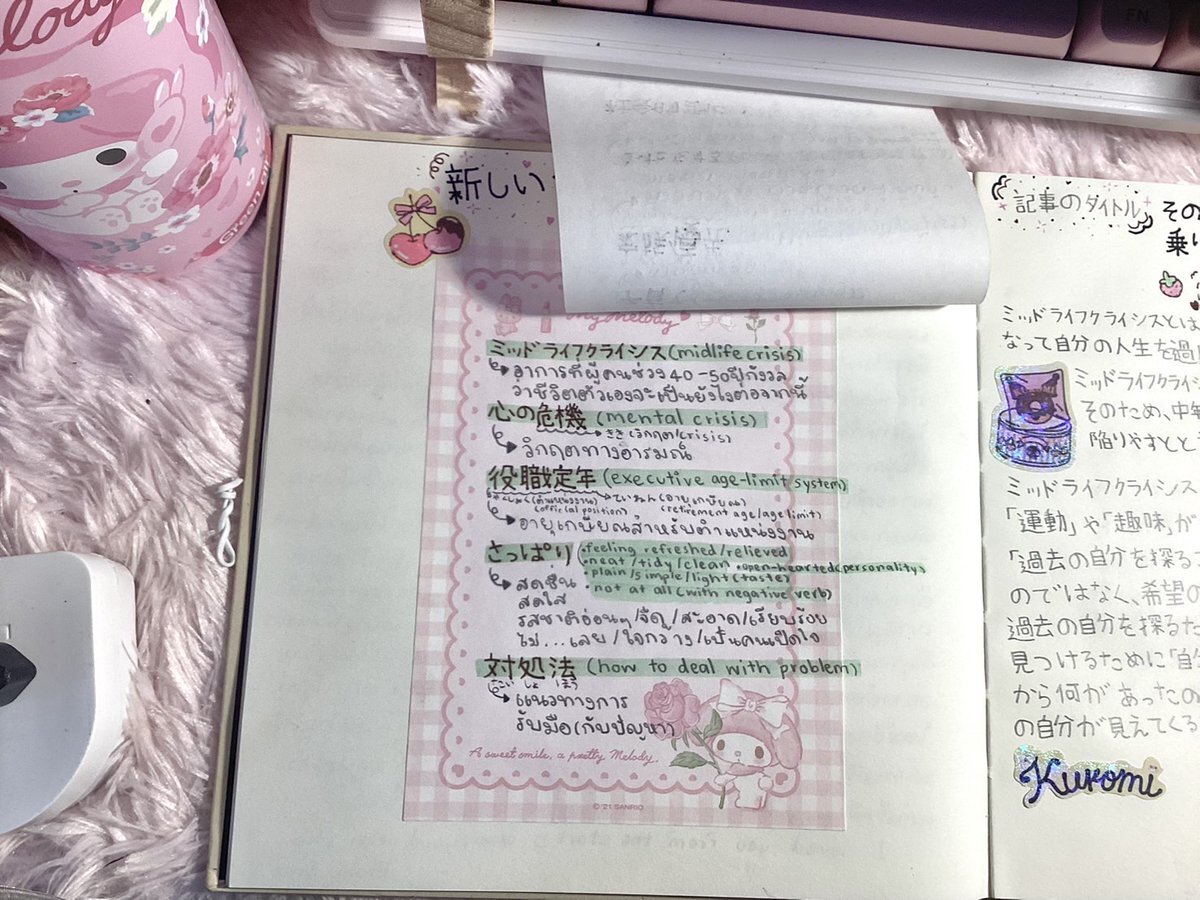 Melody
FN
新しい
My Melody
ミッドライフクライシス (midlife crisis)
อาการที่ผู้คนช่วง 40-50ปีกังวล
ว่าชีวิตตัวเองจะเป็นยังไงต่อจากนี้
心の危機 (mental crisis)
きき (วิกฤต/crisis)
วิกฤตทางอารมณ์
役職定年 (executive age-limit system)
(ตำแหน่งงาน) ていねん (อายุเกษียณ)
(official position) (retirement age/age limit)
อายุเกษียณสำหรับตำแหน่งงาน
さっぱり • feeling refreshed/relieved
• neat/tidy/clean • open-hearted (personality)
• plain/simple/light (taste)
• not at all (with negative verb)
สดชื่น
สดใส
รสชาติอ่อนๆ/จืด/สะอาด/เรียบร้อย
ไม่...เลย/ใจกว้าง/เป็นคนเปิดใจ
対処法 (how to deal with problem)
たい しょ ほう
แนวทางการ
รับมือ(กับปัญหา)
A sweet smile, a pretty Melody.
©'21 SANRIO
記事のタイトル
その
乗り
ミッドライフクライシスとは
なって自分の人生を過
ミッドライフクライシ
そのため、中年
陥りやすとと
ミッドライフクライシス
「運動」や「趣味」が
「過去の自分を探る
のではなく、希望の
過去の自分を探るた
見つけるために「自分
から何があったの
の自分が見えてくる
Kuromi